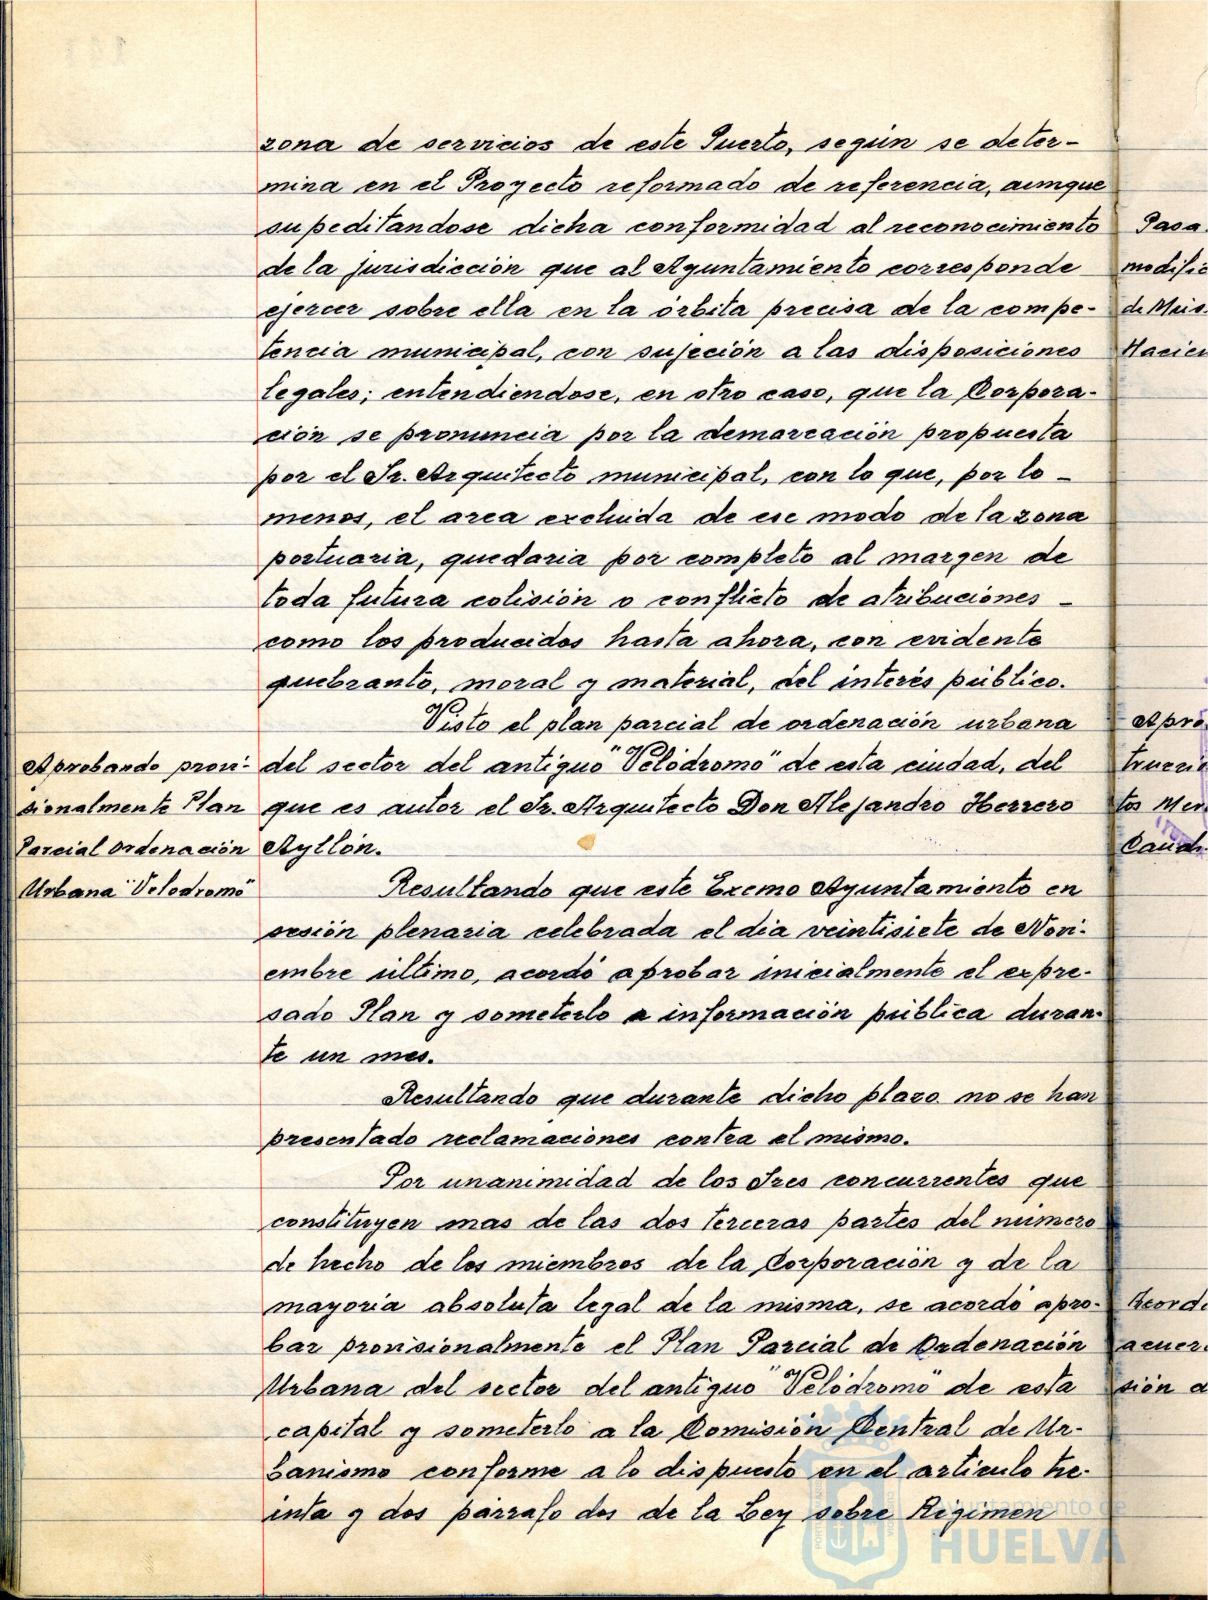 zona de servicios de este Puerto, según se deter-
mina en el Proyecto reformado de referencia, aunque
supeditandose dicha conformidad al reconocimiento
de la jurisdicción que al Ayuntamiento corresponde
ejercer sobre ella en la órbita precisa de la compe-
tencia municipal, con sujeción a las disposiciones
legales; entendiendose, en otro caso, que la Corpora-
ción se pronuncia por la demarcación propuesta
por el Sr. Arquitecto municipal, con lo que, por lo -
menos, el area excluida de ese modo de la zona
portuaria, quedaria por completo al margen de
toda futura colisión o conflicto de atribuciones -
como los producidos hasta ahora, con evidente
quebranto, moral y material, del interés público.
Visto el plan parcial de ordenación urbana
del sector del antiguo "Velódromo" de esta ciudad, del
que es autor el Sr. Arquitecto Don Alejandro Herrero
Ayllón.
Aprobando provi-
sionalmente Plan
Parcial ordenación
Urbana "Velodromo"
Resultando que este Excmo Ayuntamiento en
sesión plenaria celebrada el dia veintisiete de Novi-
embre último, acordó aprobar inicialmente el expre-
sado Plan y someterlo a información pública duran-
te un mes.
Resultando que durante dicho plazo no se han
presentado reclamaciones contra el mismo.
Por unanimidad de los Sres concurrentes que
constituyen mas de las dos terceras partes del número
de hecho de los miembros de la Corporación y de la
mayoria absoluta legal de la misma, se acordó apro-
bar provisionalmente el Plan Parcial de Ordenación
Urbana del sector del antiguo "Velódromo" de esta
capital y someterlo a la Comisión Central de Ur-
banismo conforme a lo dispuesto en el articulo tre-
inta y dos párrafo dos de la Ley sobre Regimen
Pasa
modific
de Mais
Hacien
Apro
trucci
tos Mer
Caud
Acord
acuer
sión a
Ayuntamiento de
HUELVA